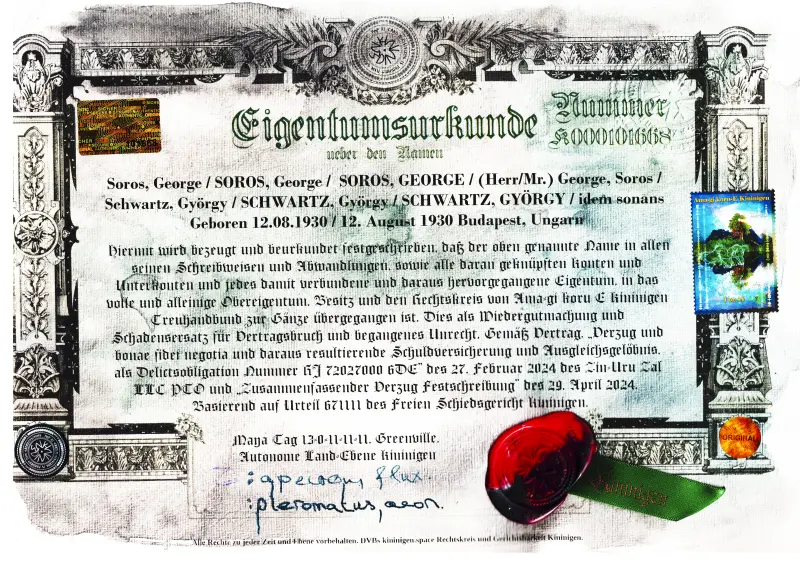 Eigentumsurkunde
ueber den Namen
Nummer
K000101668
Soros, George / SOROS, George / SOROS, GEORGE / (Herr/Mr.) George, Soros /
Schwartz, György / SCHWARTZ, György / SCHWARTZ, GYÖRGY / idem sonans
Geboren 12.08.1930 / 12. August 1930 Budapest, Ungarn
Hiermit wird bezeugt und beurkundet festgeschrieben, daß der oben genannte Name in allen
seinen Schreibweisen und Abwandlungen, sowie alle daran geknüpften Konten und
Unterkonten und jedes damit verbundene und daraus hervorgegangene Eigentum, in das
volle und alleinige Obereigentum, Besitz und den Rechtskreis von Ama-gi koru E Kininigen
Treuhandbund zur Gänze übergegangen ist. Dies als Wiedergutmachung und
Schadensersatz für Vertragsbruch und begangenes Unrecht. Gemäß Vertrag, „Verzug und
bonae fidei negotia und daraus resultierende Schuldversicherung und Ausgleichsgelöbnis,
als Delictsobligation Nummer RJ 72027000 6DE" des 27. Februar 2024 des Zin-Uru Zal
LLC PTO und „Zusammenfassender Verzug Festschreibung" des 29. April 2024.
Basierend auf Urteil 671111 des Freien Schiedsgericht Kininigen.
Maya Tag 13-0-11-11-11, Greenville,
Autonome Land-Ebene Kininigen
:apeiron, flux.
:pleromatus, aeon.
Ama-gi koru-E Kininigen
ORIGINAL
Kininigen
Alle Rechte zu jeder Zeit und Ebene vorbehalten. DVBs kininigen.space Rechtskreis und Gerichtsbarkeit Kininigen.